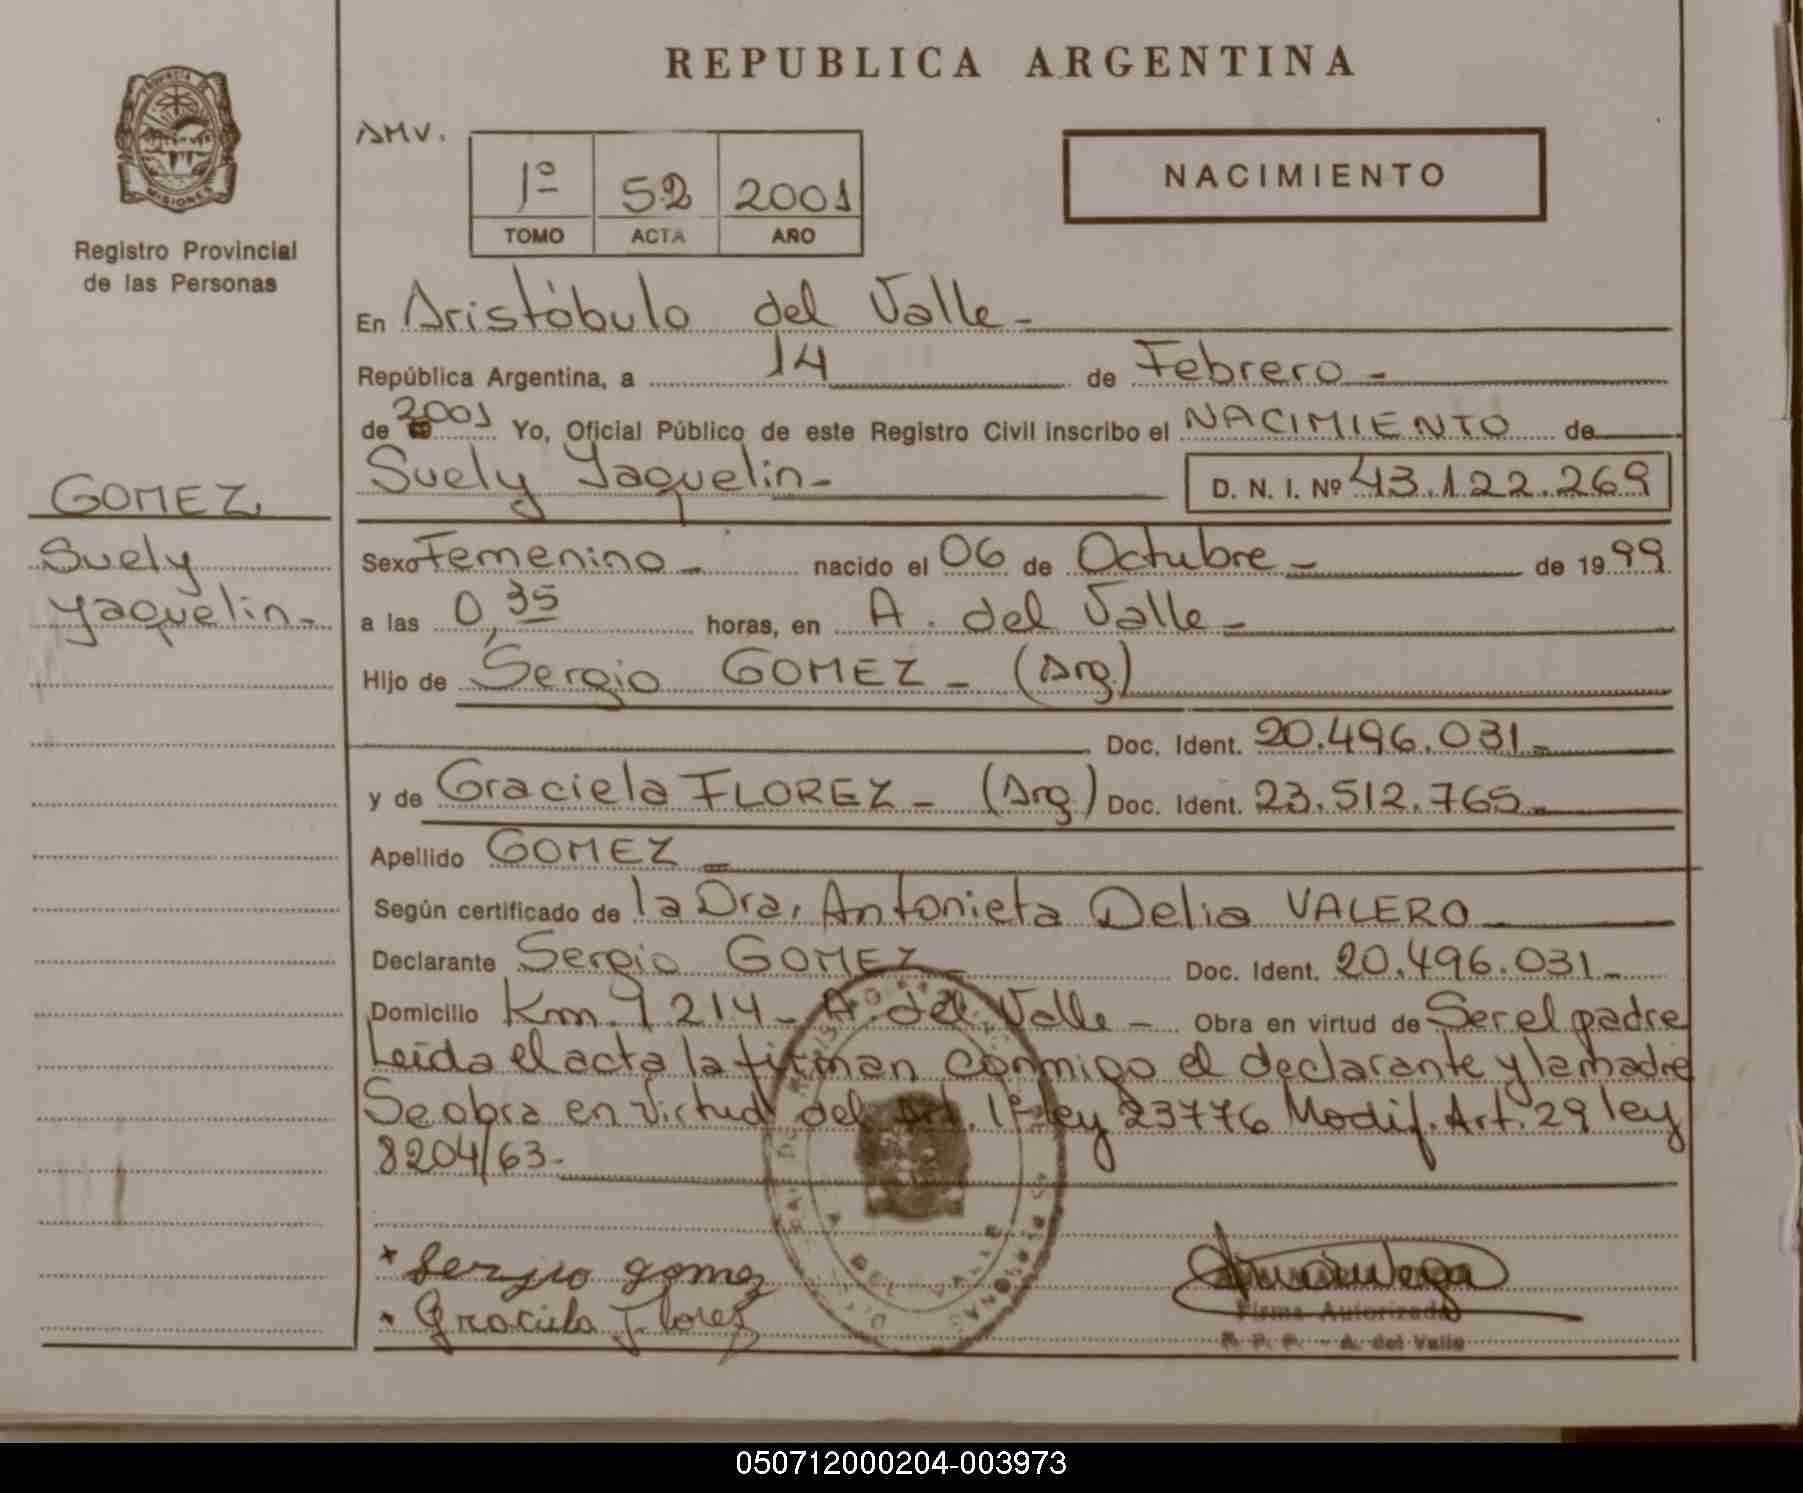 REPUBLICA ARGENTINA
PROVINCIA DE
MISIONES
Registro Provincial
de las Personas
AMV.
1º 52 2001
TOMO ACTA AÑO
NACIMIENTO
En Aristóbulo del Valle -
República Argentina, a 14 de Febrero -
de 2001 Yo, Oficial Público de este Registro Civil inscribo el NACIMIENTO de
Suely Yaquelin - D. N. I. Nº 43.122.269
GOMEZ,
Suely
Yaquelin -
Sexo Femenino - nacido el 06 de Octubre - de 1999
a las 0,35 horas, en A. del Valle -
Hijo de Sergio GOMEZ - (Arg.)
Doc. Ident. 20.496.031 -
y de Graciela FLOREZ - (Arg.) Doc. Ident. 23.512.765 -
Apellido GOMEZ -
Según certificado de la Dra. Antonieta Delia VALERO
Declarante Sergio GOMEZ - Doc. Ident. 20.496.031 -
Domicilio Km. 1214 - A. del Valle - Obra en virtud de Ser el padre
Leída el acta la firman conmigo el declarante y la madre
Se obra en virtud del Art. 1º ley 23776 Modif. Art. 29 ley
8204/63 -
A. DEL VALLE
Sergio gomez
Graciela Florez
Firma Autorizada
R. P. P. - A. del Valle
050712000204-003973